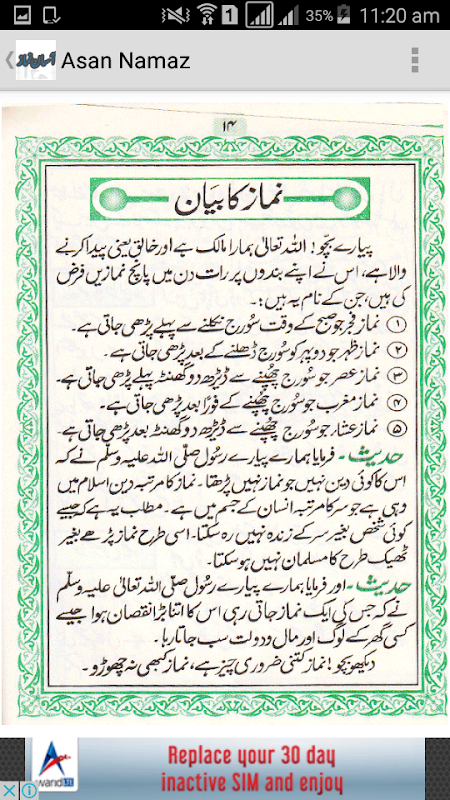 1 35% 11:20 am
آسان نماز Asan Namaz
۱۴
نماز کا بیان
پیارے بچّو! اللہ تعالیٰ ہمارا مالک ہے اور خالق یعنی پیدا کرنے
والا ہے، اس نے اپنے بندوں پر رات دن میں پانچ نمازیں فرض
کی ہیں، جن کے نام یہ ہیں:۔
① نماز فجر جو صبح کے وقت سُورج نکلنے سے پہلے پڑھی جاتی ہے۔
② نماز ظہر جو دوپہر کو سُورج ڈھلنے کے بعد پڑھی جاتی ہے۔
③ نماز عصر جو سُورج چھُپنے سے ڈیڑھ دو گھنٹہ پہلے پڑھی جاتی ہے۔
④ نماز مغرب جو سُورج چھُپنے کے فورًا بعد پڑھی جاتی ہے۔
⑤ نماز عشاء جو سُورج چھُپنے سے ڈیڑھ دو گھنٹہ بعد پڑھی جاتی ہے۔
حدیث ۔ فرمایا ہمارے پیارے رسُول صلّی اللہ علیہ وسلّم نے کہ
اس کا کوئی دین نہیں جو نماز نہیں پڑھتا۔ نماز کا مرتبہ دین اسلام میں
وہی ہے جو سر کا مرتبہ انسان کے جسم میں ہے۔ مطلب یہ ہے کہ جیسے
کوئی شخص بغیر سر کے زندہ نہیں رہ سکتا۔ اسی طرح نماز پڑھے بغیر
ٹھیک طرح کا مسلمان نہیں ہو سکتا۔
حدیث ۔ اور فرمایا ہمارے پیارے رسُول صلی اللہ تعالیٰ علیہ وسلّم
نے کہ جس کی ایک نماز جاتی رہی اس کا اتنا بڑا نقصان ہوا جیسے
کسی گھر کے لوگ اور مال و دولت سب جاتا رہا۔
دیکھو بچّو! نماز کتنی ضروری چیز ہے، نماز کبھی نہ چھوڑو۔
warid LTE
Replace your 30 day
inactive SIM and enjoy